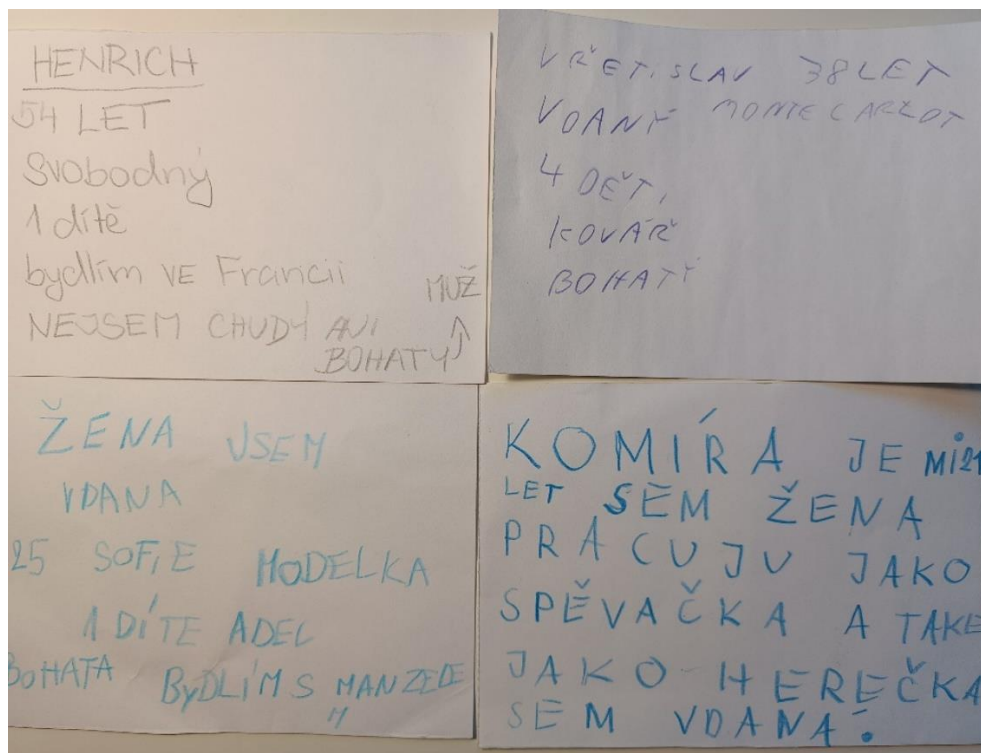 HENRICH
54 LET
Svobodný
1 dítě
bydlím VE Francii
MUŽ
NEJSEM CHUDÝ ANI
BOHATÝ
VŘETISLAV 38 LET
VDANÝ MONTECARLOT
4 DĚTI
KOVÁŘ
BOHATÝ
ŽENA JSEM
VDANA
25 SOFIE MODELKA
1 DÍTE ADEL
BOHATA BYDLÍM S MANZELE
M
KOMÍRA JE MI 21
LET SEM ŽENA
PRACUJU JAKO
SPĚVAČKA A TAKE
JAKO HEREČKA
SEM VDANÁ.